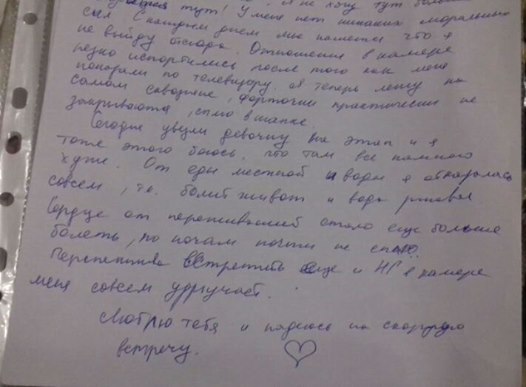 тут! У меня нет никаких моральных
сил. С каждым днем мне кажется что я
не выйду отсюда. Отношения в камере
резко испортились после того как меня
показали по телевизору, а теперь лежу на
самом сквозняке, форточки практически не
закриваются, сплю в шапке.
Сегодня увезли девочку на этап и я
тоже этого боюсь, что там все намного
хуже. От еды местной и воды я отказалась
совсем, т.к. болит живот и вода ржавая
Сердце от переживаний стало еще больше
болеть, по ночам почти не сплю.
Перспектива встретить еще и НГ в камере
меня совсем удручает.
Люблю тебя и надеюсь на скорую
встречу. ♡